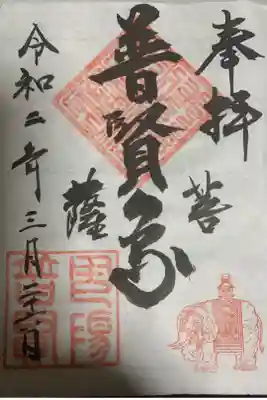 奉拝
普賢象
菩
薩
令和二年三月二十一日